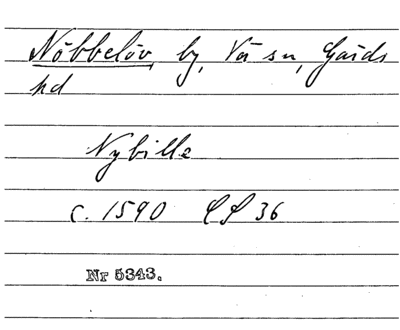 Nöbbelöv, by, Vä sn, Gärds
hd
Nybille
c. 1590 LP 36
Nr 5343.